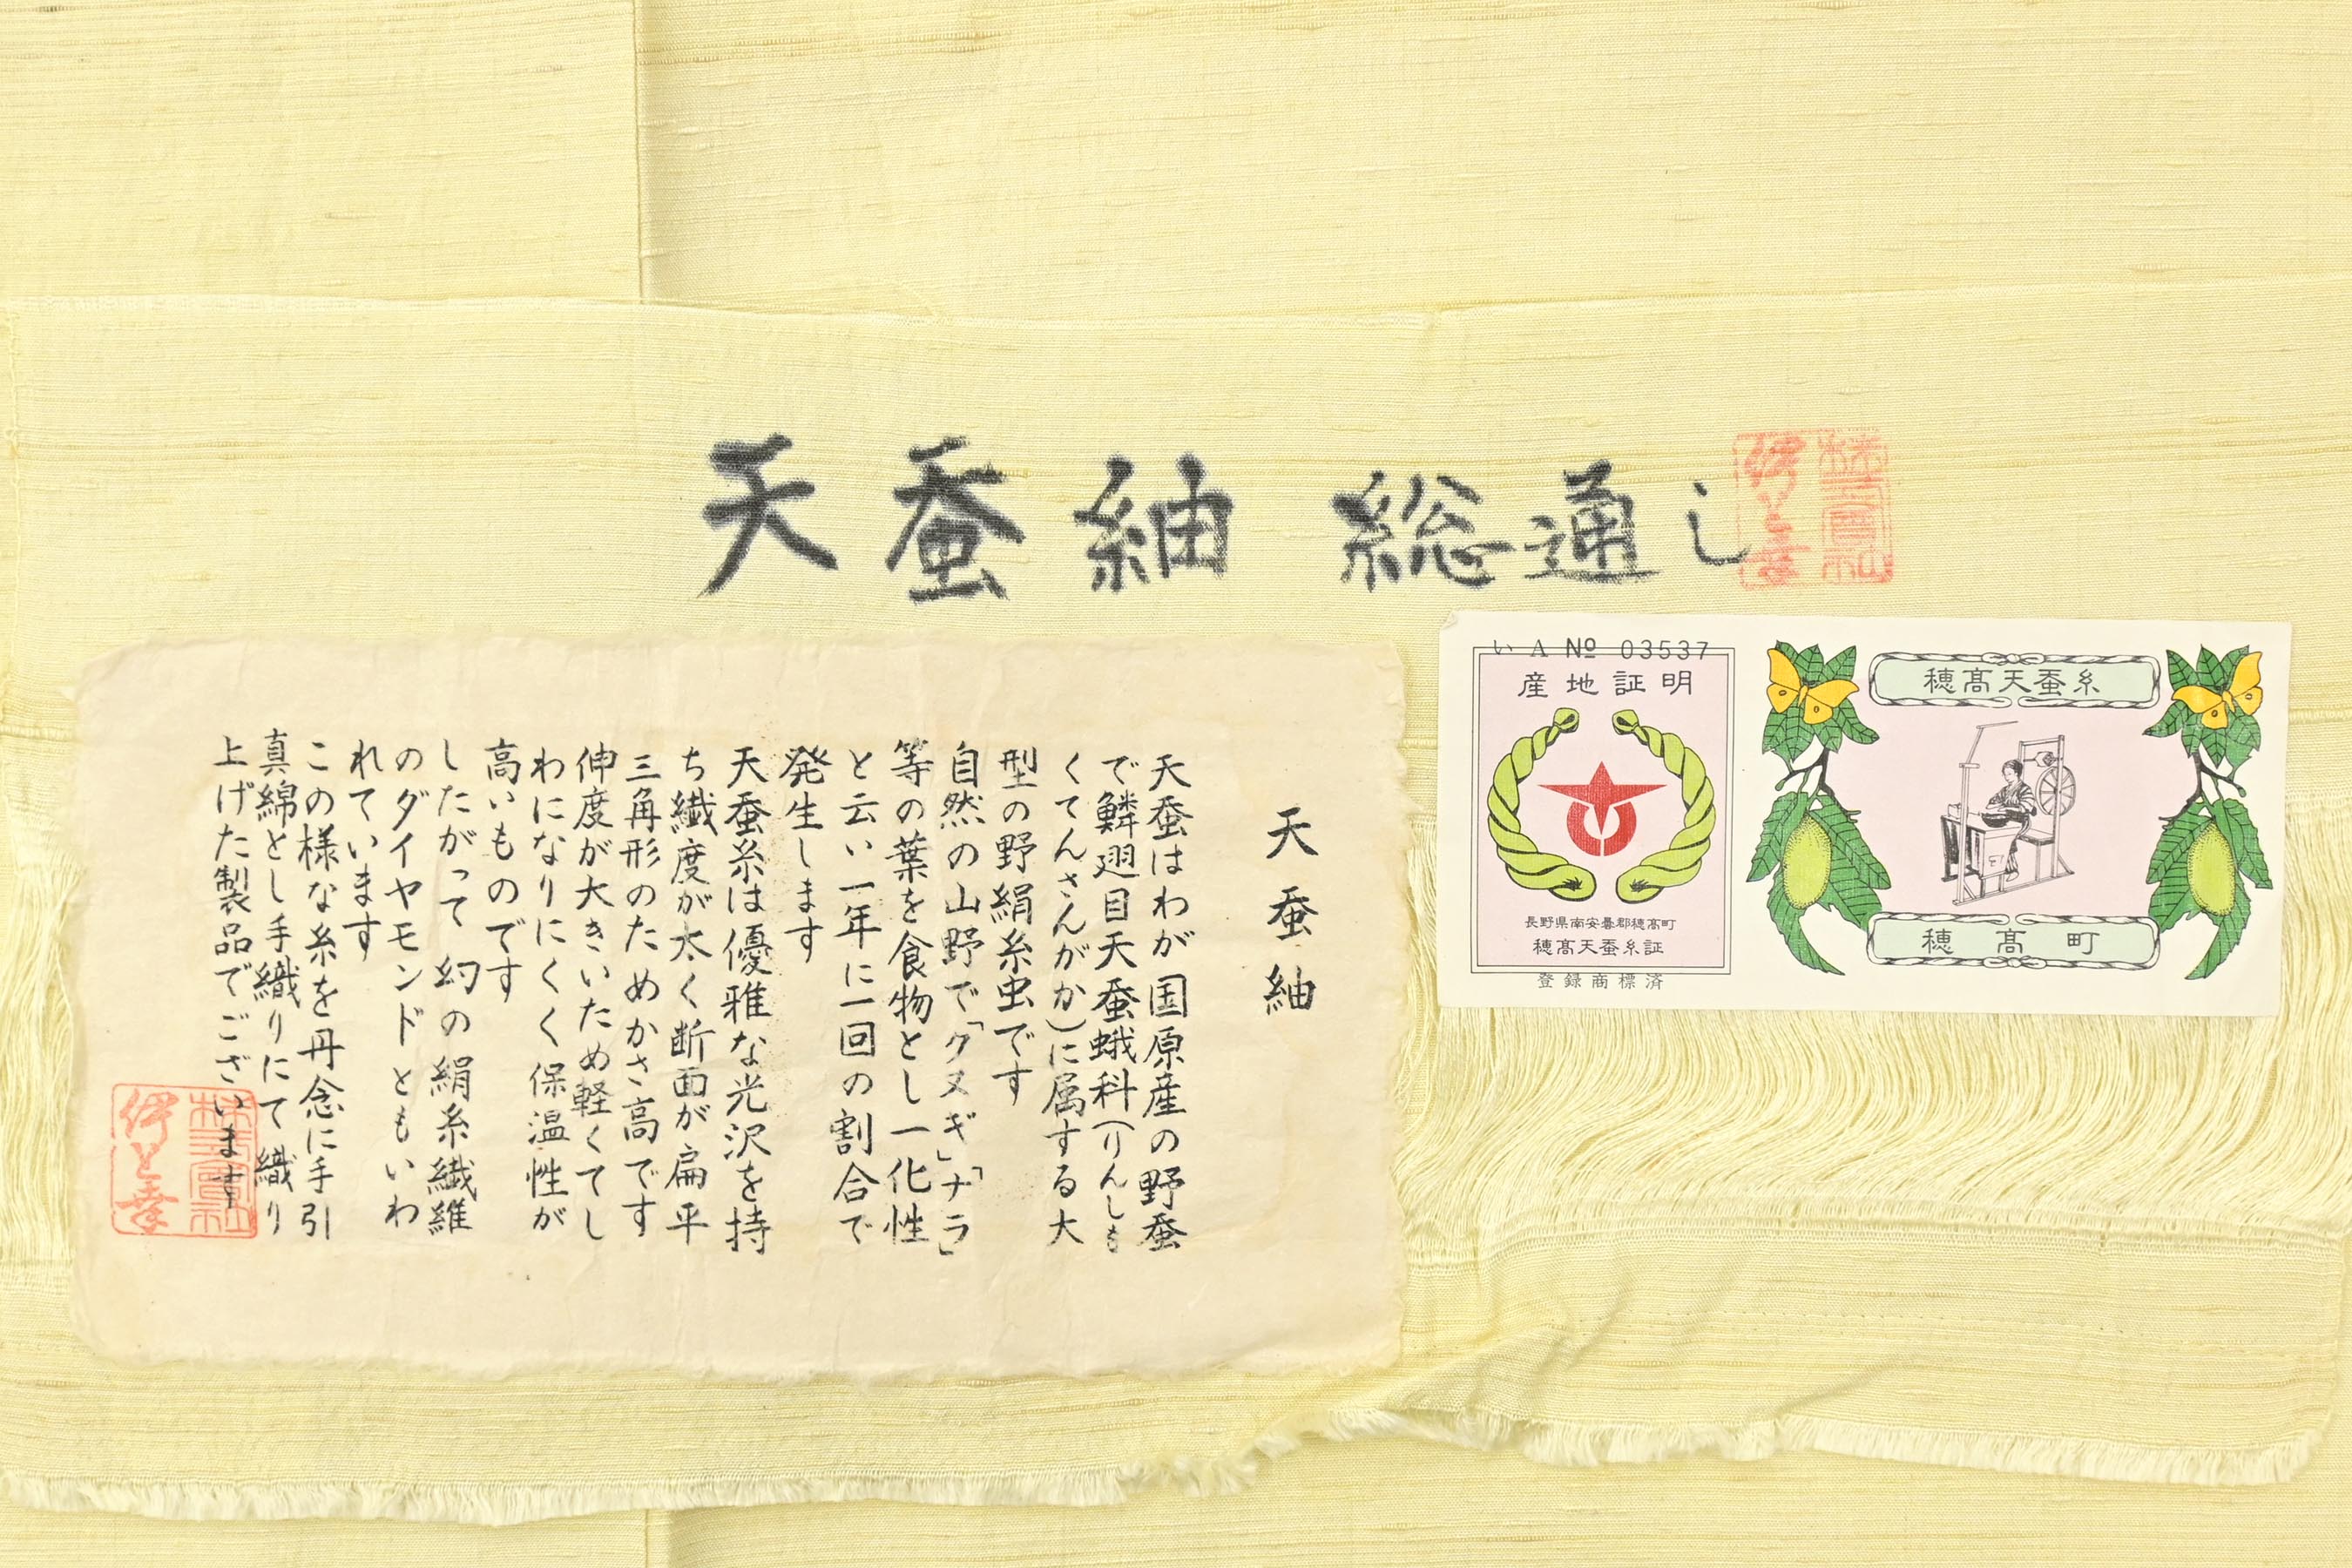 天蚕紬 総通し
株式會社
伊と幸
天蚕紬
天蚕はわが国原産の野蚕
で鱗翅目天蚕蛾科(りんしも
くてんさんがか)に属する大
型の野絹糸虫です
自然の山野で「クヌギ」「ナラ」
等の葉を食物とし一化性
と云い一年に一回の割合で
発生します
天蚕糸は優雅な光沢を持
ち繊度が太く断面が扁平
三角形のためかさ高です
伸度が大きいため軽くてし
わになりにくく保温性が
高いものです
したがって幻の絹糸繊維
のダイヤモンドともいわ
れています
この様な糸を丹念に手引
真綿とし手織りにて織り
上げた製品でございます
株式會社
伊と幸
い A № 03537
産地証明
長野県南安曇郡穂高町
穂髙天蚕糸証
登録商標済
穂髙天蚕糸
穂髙町